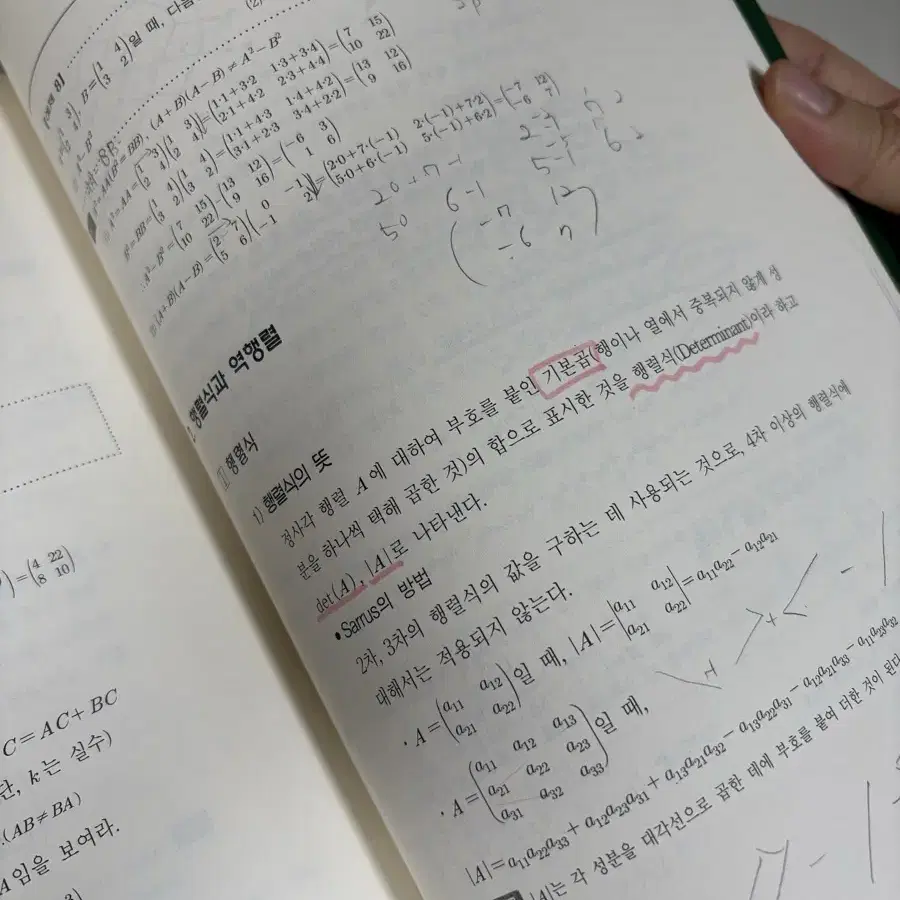 [예제 8]
B=(1 4 / 3 2)일 때, 다음
A²−B²
(A+B)(A−B)≠A²−B²
A²=AA=(1 3 / 2 4)(1 3 / 2 4)=(1·1+3·2 1·3+3·4 / 2·1+4·2 2·3+4·4)=(7 15 / 10 22)
B²=BB=(1 4 / 3 2)(1 4 / 3 2)=(1·1+4·3 1·4+4·2 / 3·1+2·3 3·4+2·2)=(13 12 / 9 16)
∴A²−B²=(7 15 / 10 22)−(13 12 / 9 16)=(−6 3 / 1 6)
(A+B)(A−B)=(2 7 / 5 6)(0 −1 / −1 2)=(2·0+7·(−1) 2·(−1)+7·2 / 5·0+6·(−1) 5·(−1)+6·2)=(−7 12 / −6 7)
20+7-1
50 6-1
(-7 12 / -6 7)
행렬식과 역행렬
행렬식
1) 행렬식의 뜻
정사각 행렬 A에 대하여 부호를 붙인 기본곱(행이나 열에서 중복되지 않게 성
분을 하나씩 택해 곱한 것)의 합으로 표시한 것을 행렬식(Determinant)이라 하고
det(A), |A|로 나타낸다.
•Sarrus의 방법
2차, 3차의 행렬식의 값을 구하는 데 사용되는 것으로, 4차 이상의 행렬식에
대해서는 적용되지 않는다.
· A=(a₁₁ a₁₂ / a₂₁ a₂₂)일 때, |A|=|a₁₁ a₁₂ / a₂₁ a₂₂|=a₁₁a₂₂−a₁₂a₂₁
· A=(a₁₁ a₁₂ a₁₃ / a₂₁ a₂₂ a₂₃ / a₃₁ a₃₂ a₃₃)일 때,
|A|=a₁₁a₂₂a₃₃+a₁₂a₂₃a₃₁+a₁₃a₂₁a₃₂−a₁₃a₂₂a₃₁−a₁₂a₂₁a₃₃−a₁₁a₂₃a₃₂
|A|는 각 성분을 대각선으로 곱한 데에 부호를 붙여 더한 것이 된다
=(4 22 / 8 10)
C=AC+BC
단, k는 실수)
(AB≠BA)
임을 보여라.